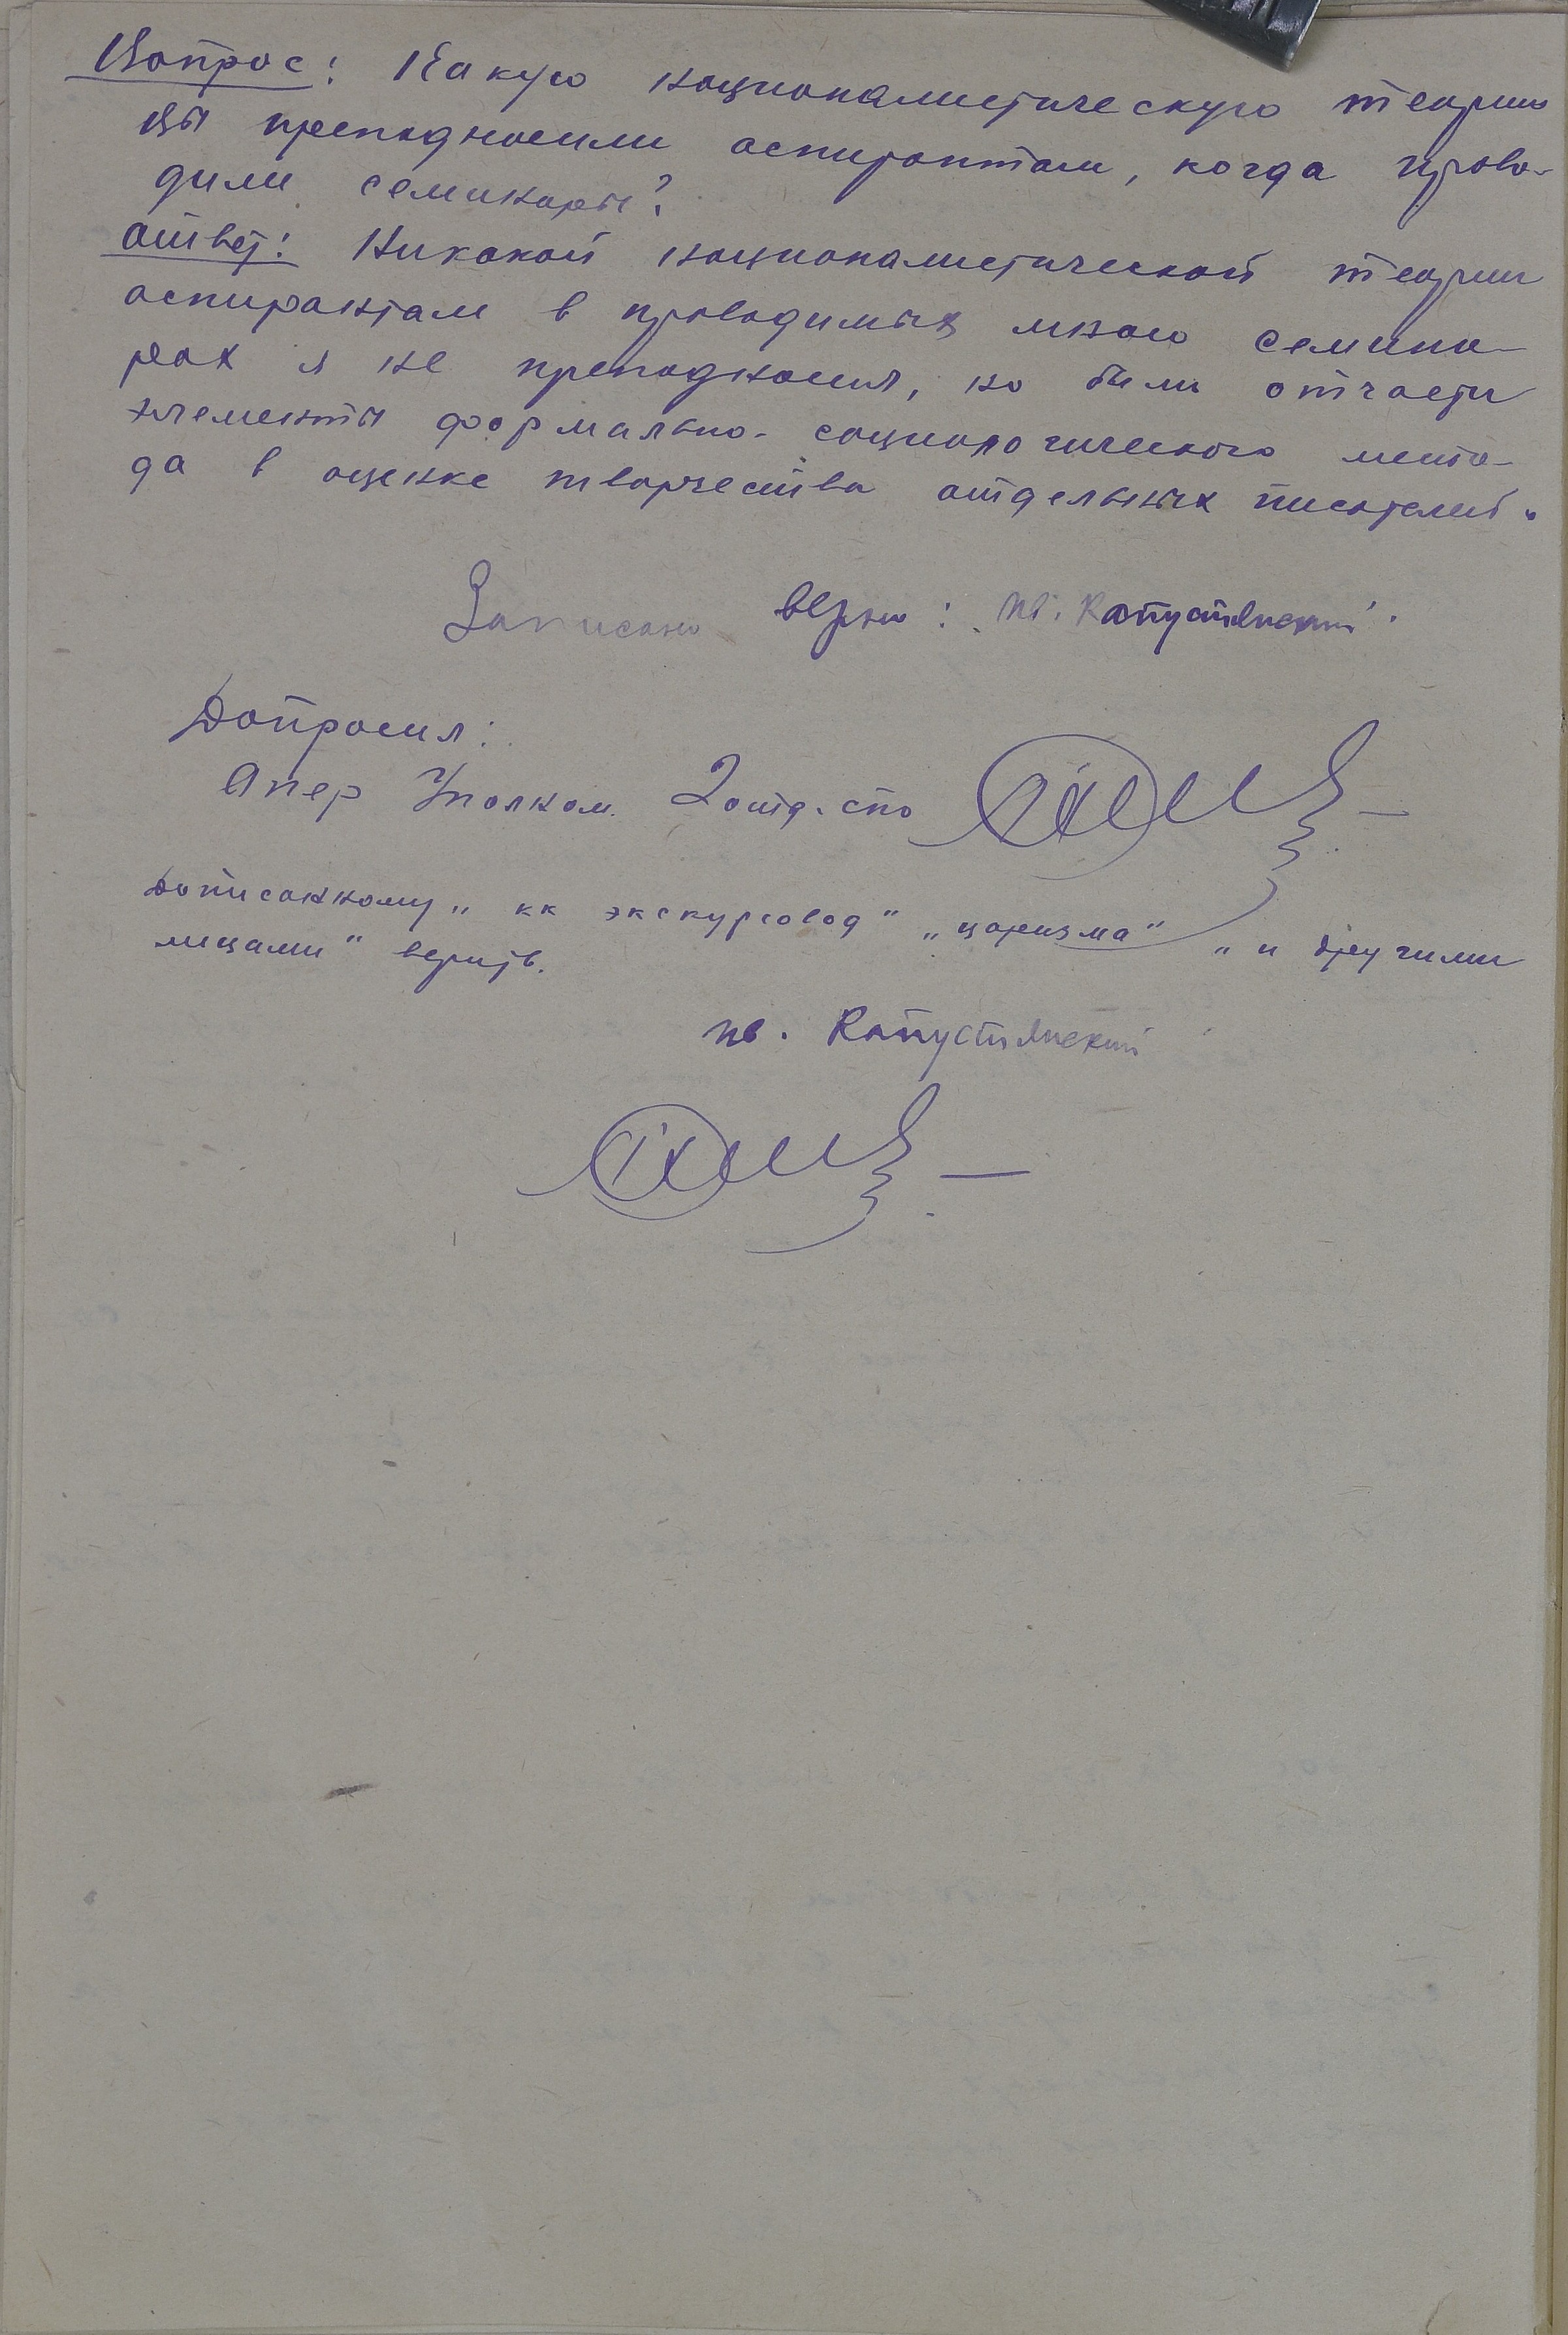 Вопрос: Какую националистическую теорию
вы преподносили аспирантам, когда прово-
дили семинары?
Ответ: Никакой националистической теории
аспирантам в проводимых мною семина-
рах я не преподносил, но были отчасти
элементы формально-социологического мето-
да в оценке творчества отдельных писателей.
Записано верно: Ив. Капустянский.
Допросил:
Опер Уполном. 2 отд. спо
Дописанному „кк экскурсовод" „царизма" „и другими
лицами" верить.
Ив. Капустянский